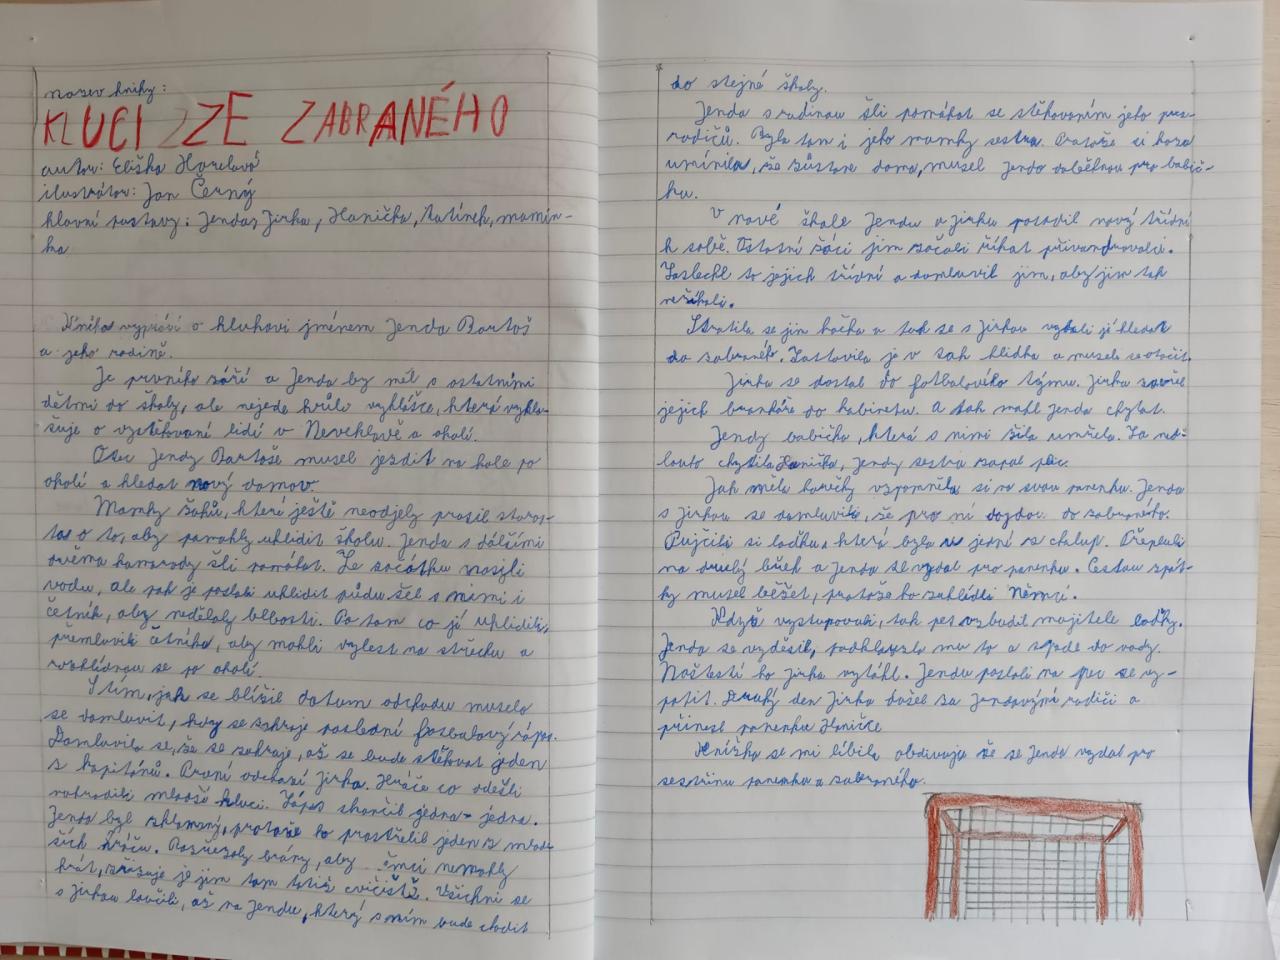 název knihy:
KLUCI ZE ZABRANÉHO
autor: Eliška Horelová
ilustrátor: Jan Černý
hlavní postavy: Jenda, Jirka, Hanička, tatínek, mamin-
ka
Kniha vypráví o klukovi jménem Jenda Bartoš
a jeho rodině.
Je prvního září a Jenda by měl s ostatními
dětmi do školy, ale nejede kvůli vyhlášce, která vyhla-
šuje o vystěhovaní lidí v Neveklově a okolí.
Otec Jendy Bartoše musel jezdit na kole po
okolí a hledat nový domov.
Mamky žáků, které ještě neodjely prosil staros-
ta o to, aby pomohly uklidit školu. Jenda s dalšími
dvěma kamarády šli pomáhat. Ze začátku nosili
vodu, ale pak je poslali uklidit půdu šel s nimi i
četník, aby nedělaly blbosti. Po tom co jí uklidili,
přemluvili četníka, aby mohli vylest na střechu a
rozhlídnou se po okolí.
S tím, jak se blížil datum odchodu muselo
se domluvit, kdy se sehraje poslední fotbalový zápas.
Domluvilo se, že se zahraje, až se bude stěhovat jeden
z kapitánů. První odchází Jirka. Hráče co odešli
nahradili mladší kluci. Zápas skončil jedna-jedna.
Jenda byl zklamaný, protože ho prostřelil jeden z mlad-
ších hráčů. Rozřezaly brány, aby němci nemohly
hrát, je jim tam totiž cvičiště. Všichni se
s Jirkou loučili, až na Jendu, který s ním bude chodit
do stejné školy.
Jenda s rodinou šli pomáhat se stěhováním jeho pra-
rodičů. Byla tam i jeho mamky sestra. Protože si koza
umínila, že zůstane doma, musel Jenda doběhnou pro babič-
ku.
V nové škole Jendu a Jirku posadil nový třídní
k sobě. Ostatní žáci jim začali říkat přivandrovalci.
Zaslechl to jejich třídní a domluvil jim, aby jim tak
neříkali.
Ztratila se jim kočka a tak se s Jirkou vydali jí hledat
do zabraného. Zastavila je v tak hlídka a musela se otočit.
Jirka se dostal do fotbalového týmu. Jirka zavřel
jejich brankáře do kabinetu. A tak mohl Jenda chytat.
Jendy babička, která s nimi žila umřela. Za ned-
louho chytila Hanička, Jendy sestra zápal plic.
Jak měla horečky vzpomněla si na svou panenku. Jenda
s Jirkou se domluvili, že pro ní dojdou do zabraného.
Pujčili si loďku, která byla u jedné z chalup. Přepluli
na druhý břeh a Jenda se vydal pro panenku. Cestou zpát-
ky musel běžet, protože ho zahlídli Němci.
Když vystupovali, tak pes vzbudil majitele loďky.
Jenda se vyděsil, podklouzla mu to a spade do vody.
Naštestí ho Jirka vytáhl. Jendu poslali na pec se vy-
potit. Druhý den Jirka došel za Jendovými rodiči a
přinesl panenku Haničce
Knížka se mi líbila obdivuju že se Jenda vydal pro
sestřinu panenku a zabraného.